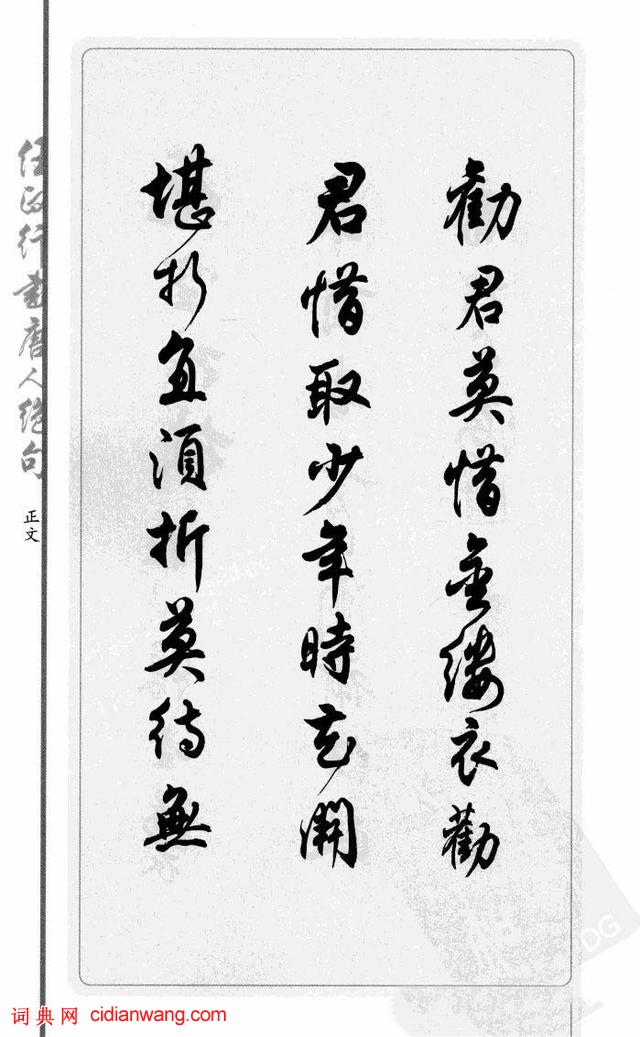 勸君莫惜金縷衣勸
君惜取少年時花開
堪折直須折莫待無
任政行書唐人絕句
正文
词典网 cidianwang.com
DG